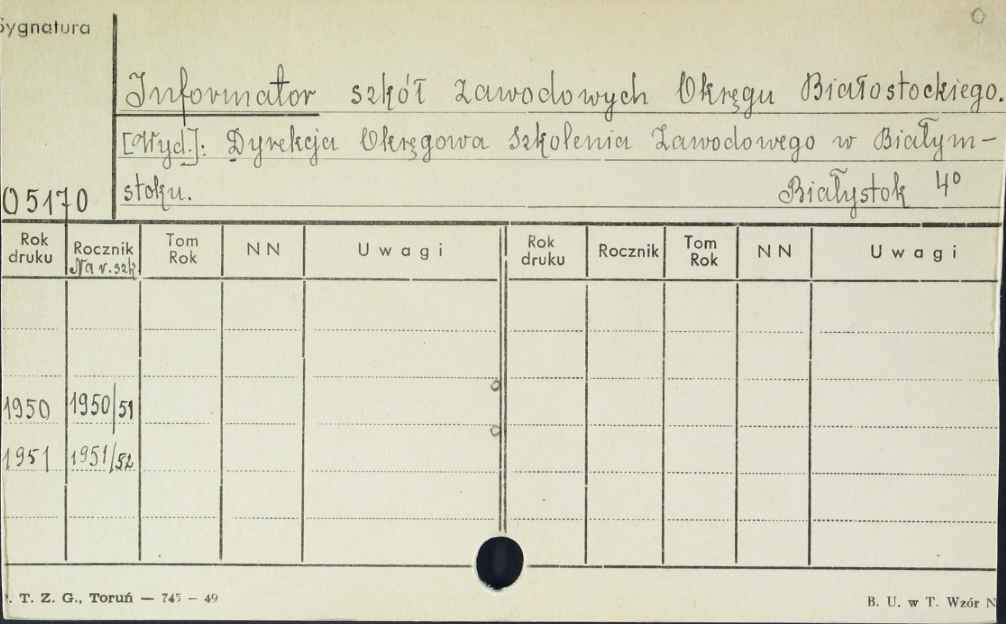 Sygnatura
Informator szkół Zawodowych Okręgu Białostockiego.
[Wyd.]: Dyrekcja Okręgowa Szkolenia Zawodowego w Białym-
05170 stoku. Białystok 4°
Rok druku Rocznik Na r. szk Tom Rok NN Uwagi Rok druku Rocznik Tom Rok NN Uwagi
1950 1950/51
1951 1951/52
. T. Z. G., Toruń — 745 – 49 B. U. w T. Wzór N